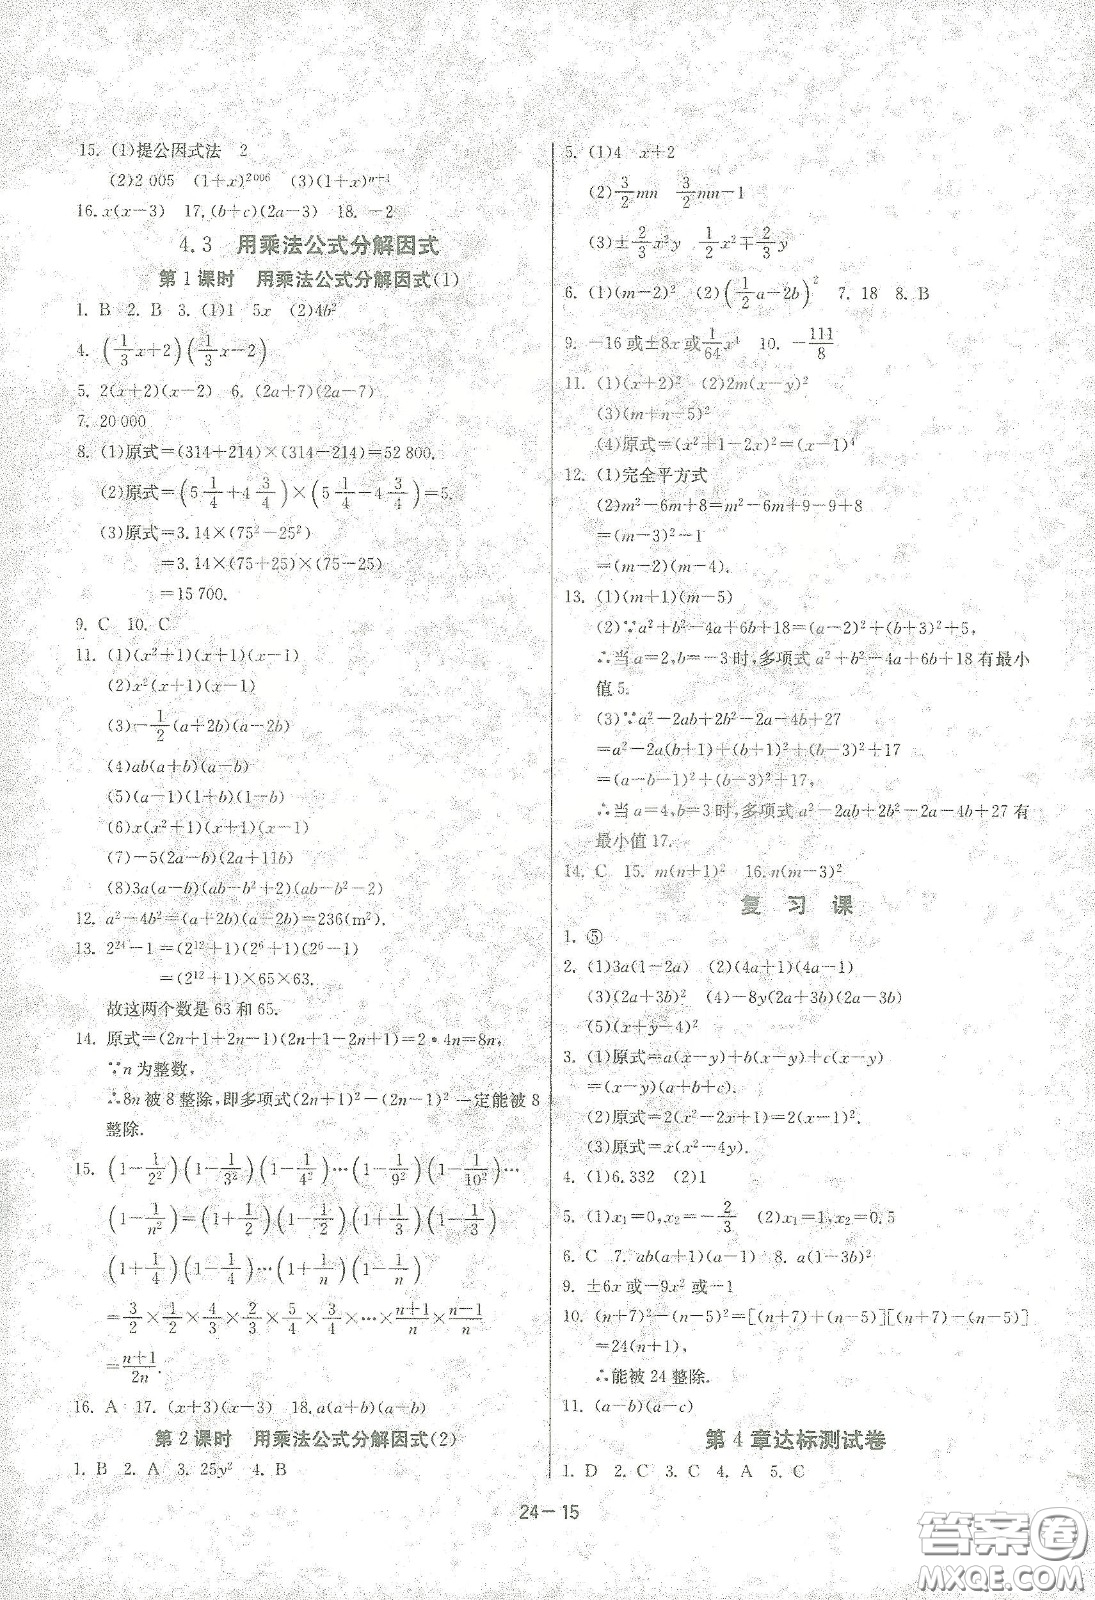 15. (1)提公因式法 2
(2)2 005 (1+x)²⁰⁰⁶ (3)(1+x)ⁿ⁺¹
16. x(x-3) 17. (b+c)(2a-3) 18. -2
4.3 用乘法公式分解因式
第1课时 用乘法公式分解因式(1)
1. B 2. B 3. (1)1 5x (2)4b²
4. (1/3x+2)(1/3x-2)
5. 2(x+2)(x-2) 6. (2a+7)(2a-7)
7. 20 000
8. (1)原式=(314+214)×(314-214)=52 800.
(2)原式=(5 1/4+4 3/4)×(5 1/4-4 3/4)=5.
(3)原式=3.14×(75²-25²)
=3.14×(75+25)×(75-25)
=15 700.
9. C 10. C
11. (1)(x²+1)(x+1)(x-1)
(2)x²(x+1)(x-1)
(3)-1/2(a+2b)(a-2b)
(4)ab(a+b)(a-b)
(5)(a-1)(1+b)(1-b)
(6)x(x²+1)(x+1)(x-1)
(7)-5(2a-b)(2a+11b)
(8)3a(a-b)(ab-b²+2)(ab-b²-2)
12. a²-4b²=(a+2b)(a-2b)=236(m²).
13. 2²⁴-1=(2¹²+1)(2⁶+1)(2⁶-1)
=(2¹²+1)×65×63.
故这两个数是 63 和 65.
14. 原式=(2n+1+2n-1)(2n+1-2n+1)=2•4n=8n,
∵n 为整数,
∴8n被 8 整除,即多项式(2n+1)²-(2n-1)²一定能被 8
整除.
15. (1-1/2²)(1-1/3²)(1-1/4²)…(1-1/9²)(1-1/10²)…
(1-1/n²)=(1+1/2)(1-1/2)(1+1/3)(1-1/3)
(1+1/4)(1-1/4)…(1+1/n)(1-1/n)
=3/2×1/2×4/3×2/3×5/4×3/4×…×(n+1)/n×(n-1)/n
=(n+1)/2n.
16. A 17. (x+3)(x-3) 18. a(a+b)(a-b)
第2课时 用乘法公式分解因式(2)
1. B 2. A 3. 25y² 4. B
5. (1)4 x+2
(2)3/2mn 3/2mn-1
(3)±2/3x²y 1/2x²∓2/3y
6. (1)(m-2)² (2)(1/2a-2b)² 7. 18 8. B
9. -16 或±8x或1/64x⁴ 10. -111/8
11. (1)(x+2)² (2)2m(x-y)²
(3)(m+n-5)²
(4)原式=(x²+1-2x)²=(x-1)⁴
12. (1)完全平方式
(2)m²-6m+8=m²-6m+9-9+8
=(m-3)²-1
=(m-2)(m-4).
13. (1)(m+1)(m-5)
(2)∵a²+b²-4a+6b+18=(a-2)²+(b+3)²+5,
∴当a=2,b=-3时,多项式 a²+b²-4a+6b+18 有最小
值 5.
(3)∵a²-2ab+2b²-2a-4b+27
=a²-2a(b+1)+(b+1)²+(b-3)²+17
=(a-b-1)²+(b-3)²+17,
∴当a=4,b=3时,多项式 a²-2ab+2b²-2a-4b+27 有
最小值 17.
14. C 15. m(n+1)² 16. n(m-3)²
复 习 课
1. ⑤
2. (1)3a(1-2a) (2)(4a+1)(4a-1)
(3)(2a+3b)² (4)-8y(2a+3b)(2a-3b)
(5)(x+y-4)²
3. (1)原式=a(x-y)+b(x-y)+c(x-y)
=(x-y)(a+b+c).
(2)原式=2(x²-2x+1)=2(x-1)².
(3)原式=x(x²-4y).
4. (1)6.332 (2)1
5. (1)x₁=0,x₂=-2/3 (2)x₁=1,x₂=0.5
6. C 7. ab(a+1)(a-1) 8. a(1-3b)²
9. ±6x或-9x²或-1
10. (n+7)²-(n-5)²=[(n+7)+(n-5)][(n+7)-(n-5)]
=24(n+1),
∴能被 24 整除.
11. (a-b)(a-c)
第4章达标测试卷
1. D 2. C 3. C 4. A 5. C
24-15
答案圈
MXQE.COM